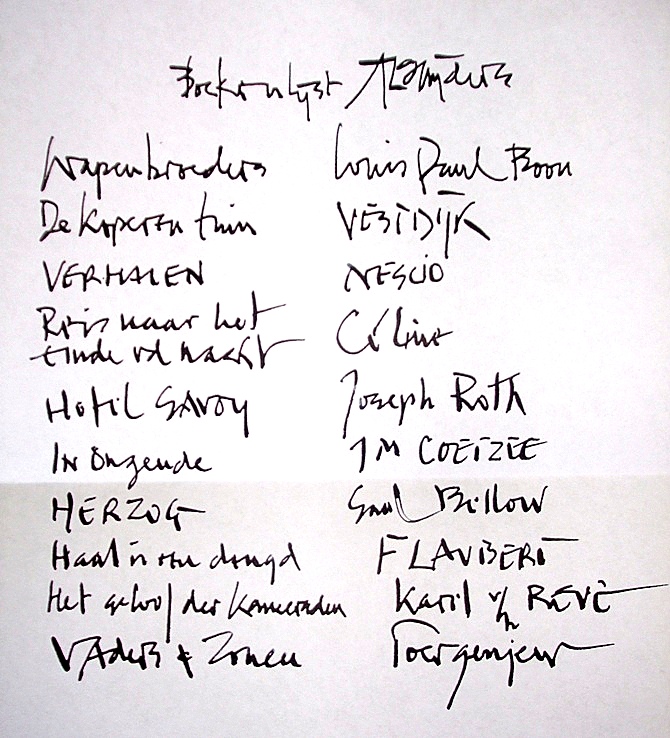 Boekenlijst
Wapenbroeders Louis Paul Boon
De koperen tuin VESTDIJK
VERHALEN NESCIO
Reis naar het
einde vd nacht Céline
Hotel SAVOY Joseph Roth
In ongenade JM COETZEE
HERZOG Saul Bellow
Haat is een deugd FLAUBERT
Het geloof der kameraden Karel v/h REVE
VAders & Zonen Toergenjew